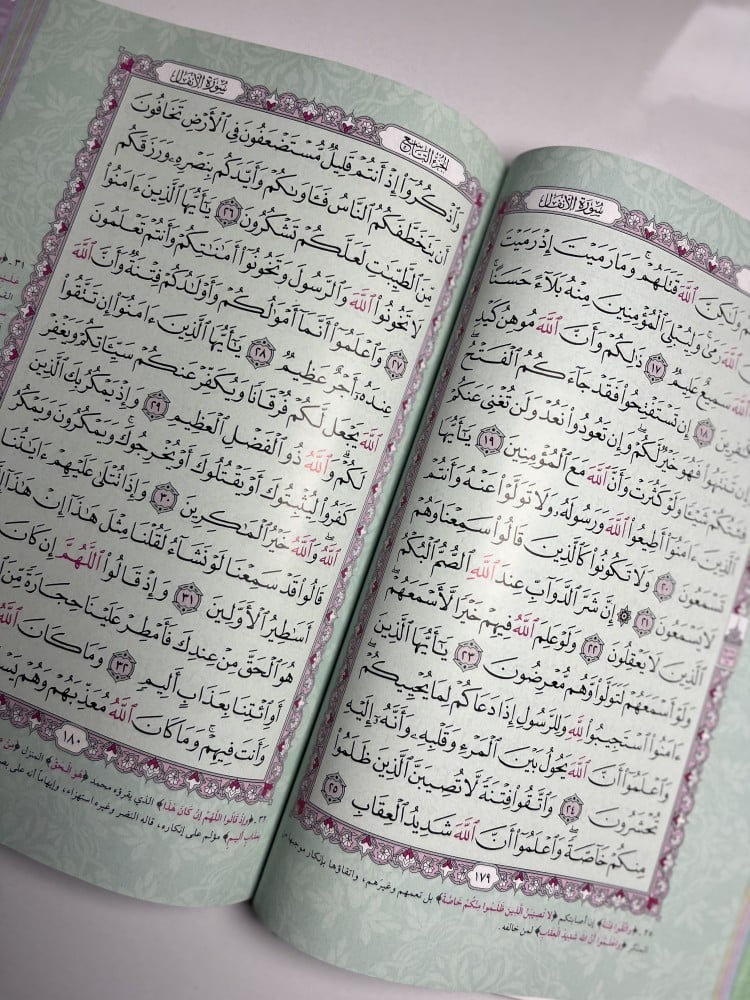 سُورَةُ الأَنفَالِ
وَلَٰكِنَّ ٱللَّهَ قَتَلَهُمْ ۚ وَمَا رَمَيْتَ إِذْ رَمَيْتَ
ٱللَّهَ رَمَىٰ ۚ وَلِيُبْلِىَ ٱلْمُؤْمِنِينَ مِنْهُ بَلَآءً حَسَنًا ۚ
ٱللَّهَ سَمِيعٌ عَلِيمٌ ١٧ ذَٰلِكُمْ وَأَنَّ ٱللَّهَ مُوهِنُ كَيْدِ
١٨ إِن تَسْتَفْتِحُوا۟ فَقَدْ جَآءَكُمُ ٱلْفَتْحُ ۖ
تَنتَهُوا۟ فَهُوَ خَيْرٌ لَّكُمْ ۖ وَإِن تَعُودُوا۟ نَعُدْ وَلَن تُغْنِىَ عَنكُمْ
فِئَتُكُمْ شَيْـًٔا وَلَوْ كَثُرَتْ وَأَنَّ ٱللَّهَ مَعَ ٱلْمُؤْمِنِينَ ١٩ يَـٰٓأَيُّهَا
ٱلَّذِينَ ءَامَنُوٓا۟ أَطِيعُوا۟ ٱللَّهَ وَرَسُولَهُۥ وَلَا تَوَلَّوْا۟ عَنْهُ وَأَنتُمْ
تَسْمَعُونَ ٢٠ وَلَا تَكُونُوا۟ كَٱلَّذِينَ قَالُوا۟ سَمِعْنَا وَهُمْ
لَا يَسْمَعُونَ ٢١ ۞ إِنَّ شَرَّ ٱلدَّوَآبِّ عِندَ ٱللَّهِ ٱلصُّمُّ ٱلْبُكْمُ
ٱلَّذِينَ لَا يَعْقِلُونَ ٢٢ وَلَوْ عَلِمَ ٱللَّهُ فِيهِمْ خَيْرًا لَّأَسْمَعَهُمْ ۖ
وَلَوْ أَسْمَعَهُمْ لَتَوَلَّوا۟ وَّهُم مُّعْرِضُونَ ٢٣ يَـٰٓأَيُّهَا ٱلَّذِينَ
ءَامَنُوا۟ ٱسْتَجِيبُوا۟ لِلَّهِ وَلِلرَّسُولِ إِذَا دَعَاكُمْ لِمَا يُحْيِيكُمْ ۖ
وَٱعْلَمُوٓا۟ أَنَّ ٱللَّهَ يَحُولُ بَيْنَ ٱلْمَرْءِ وَقَلْبِهِۦ وَأَنَّهُۥٓ إِلَيْهِ
تُحْشَرُونَ ٢٤ وَٱتَّقُوا۟ فِتْنَةً لَّا تُصِيبَنَّ ٱلَّذِينَ ظَلَمُوا۟
مِنكُمْ خَآصَّةً ۖ وَٱعْلَمُوٓا۟ أَنَّ ٱللَّهَ شَدِيدُ ٱلْعِقَابِ ٢٥
١٧٩
٢٥. ﴿وَاتَّقُوا فِتْنَةً﴾ إن أصابتكم ﴿لَا تُصِيبَنَّ الَّذِينَ ظَلَمُوا مِنكُمْ خَاصَّةً﴾ بل تعمهم وغيرهم، واتقاؤها بإنكار موجبها من
المنكر ﴿وَاعْلَمُوا أَنَّ اللهَ شَدِيدُ الْعِقَابِ﴾ لمن خالفه.
سُورَةُ الأَنفَالِ
الجُزْءُ التَّاسِعُ
وَٱذْكُرُوٓا۟ إِذْ أَنتُمْ قَلِيلٌ مُّسْتَضْعَفُونَ فِى ٱلْأَرْضِ تَخَافُونَ
أَن يَتَخَطَّفَكُمُ ٱلنَّاسُ فَـَٔاوَىٰكُمْ وَأَيَّدَكُم بِنَصْرِهِۦ وَرَزَقَكُم
مِّنَ ٱلطَّيِّبَـٰتِ لَعَلَّكُمْ تَشْكُرُونَ ٢٦ يَـٰٓأَيُّهَا ٱلَّذِينَ ءَامَنُوا۟
لَا تَخُونُوا۟ ٱللَّهَ وَٱلرَّسُولَ وَتَخُونُوٓا۟ أَمَـٰنَـٰتِكُمْ وَأَنتُمْ تَعْلَمُونَ
٢٧ وَٱعْلَمُوٓا۟ أَنَّمَآ أَمْوَٰلُكُمْ وَأَوْلَـٰدُكُمْ فِتْنَةٌ وَأَنَّ ٱللَّهَ
عِندَهُۥٓ أَجْرٌ عَظِيمٌ ٢٨ يَـٰٓأَيُّهَا ٱلَّذِينَ ءَامَنُوٓا۟ إِن تَتَّقُوا۟
ٱللَّهَ يَجْعَل لَّكُمْ فُرْقَانًا وَيُكَفِّرْ عَنكُمْ سَيِّـَٔاتِكُمْ وَيَغْفِرْ
لَكُمْ ۗ وَٱللَّهُ ذُو ٱلْفَضْلِ ٱلْعَظِيمِ ٢٩ وَإِذْ يَمْكُرُ بِكَ ٱلَّذِينَ
كَفَرُوا۟ لِيُثْبِتُوكَ أَوْ يَقْتُلُوكَ أَوْ يُخْرِجُوكَ ۚ وَيَمْكُرُونَ وَيَمْكُرُ
ٱللَّهُ ۖ وَٱللَّهُ خَيْرُ ٱلْمَـٰكِرِينَ ٣٠ وَإِذَا تُتْلَىٰ عَلَيْهِمْ ءَايَـٰتُنَا
قَالُوا۟ قَدْ سَمِعْنَا لَوْ نَشَآءُ لَقُلْنَا مِثْلَ هَـٰذَآ ۙ إِنْ هَـٰذَآ
أَسَـٰطِيرُ ٱلْأَوَّلِينَ ٣١ وَإِذْ قَالُوا۟ ٱللَّهُمَّ إِن كَانَ
هُوَ ٱلْحَقَّ مِنْ عِندِكَ فَأَمْطِرْ عَلَيْنَا حِجَارَةً مِّنَ
أَوِ ٱئْتِنَا بِعَذَابٍ أَلِيمٍ ٣٢ وَمَا كَانَ ٱللَّهُ
وَأَنتَ فِيهِمْ ۚ وَمَا كَانَ ٱللَّهُ مُعَذِّبَهُمْ وَهُمْ
١٨٠
٣٢. ﴿وَإِذْ قَالُوا اللَّهُمَّ إِنْ كَانَ هَذَا﴾ الذي يقرؤه محمد ﴿هُوَ الْحَقَّ﴾ المنزل
بِعَذَابٍ أَلِيمٍ﴾ مؤلم على إنكاره، قاله النضر وغيره استهزاء، وإيهاماً أنه على
٣١.